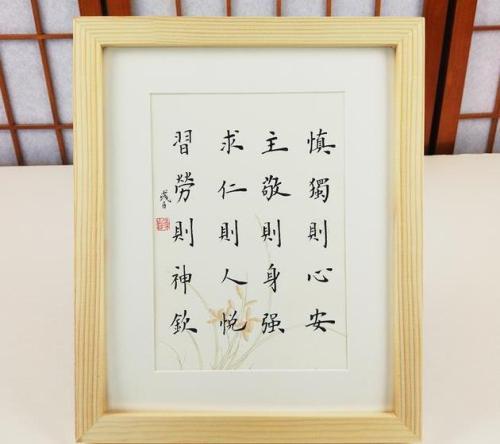 慎獨則心安
主敬則身强
求仁則人悅
習勞則神欽